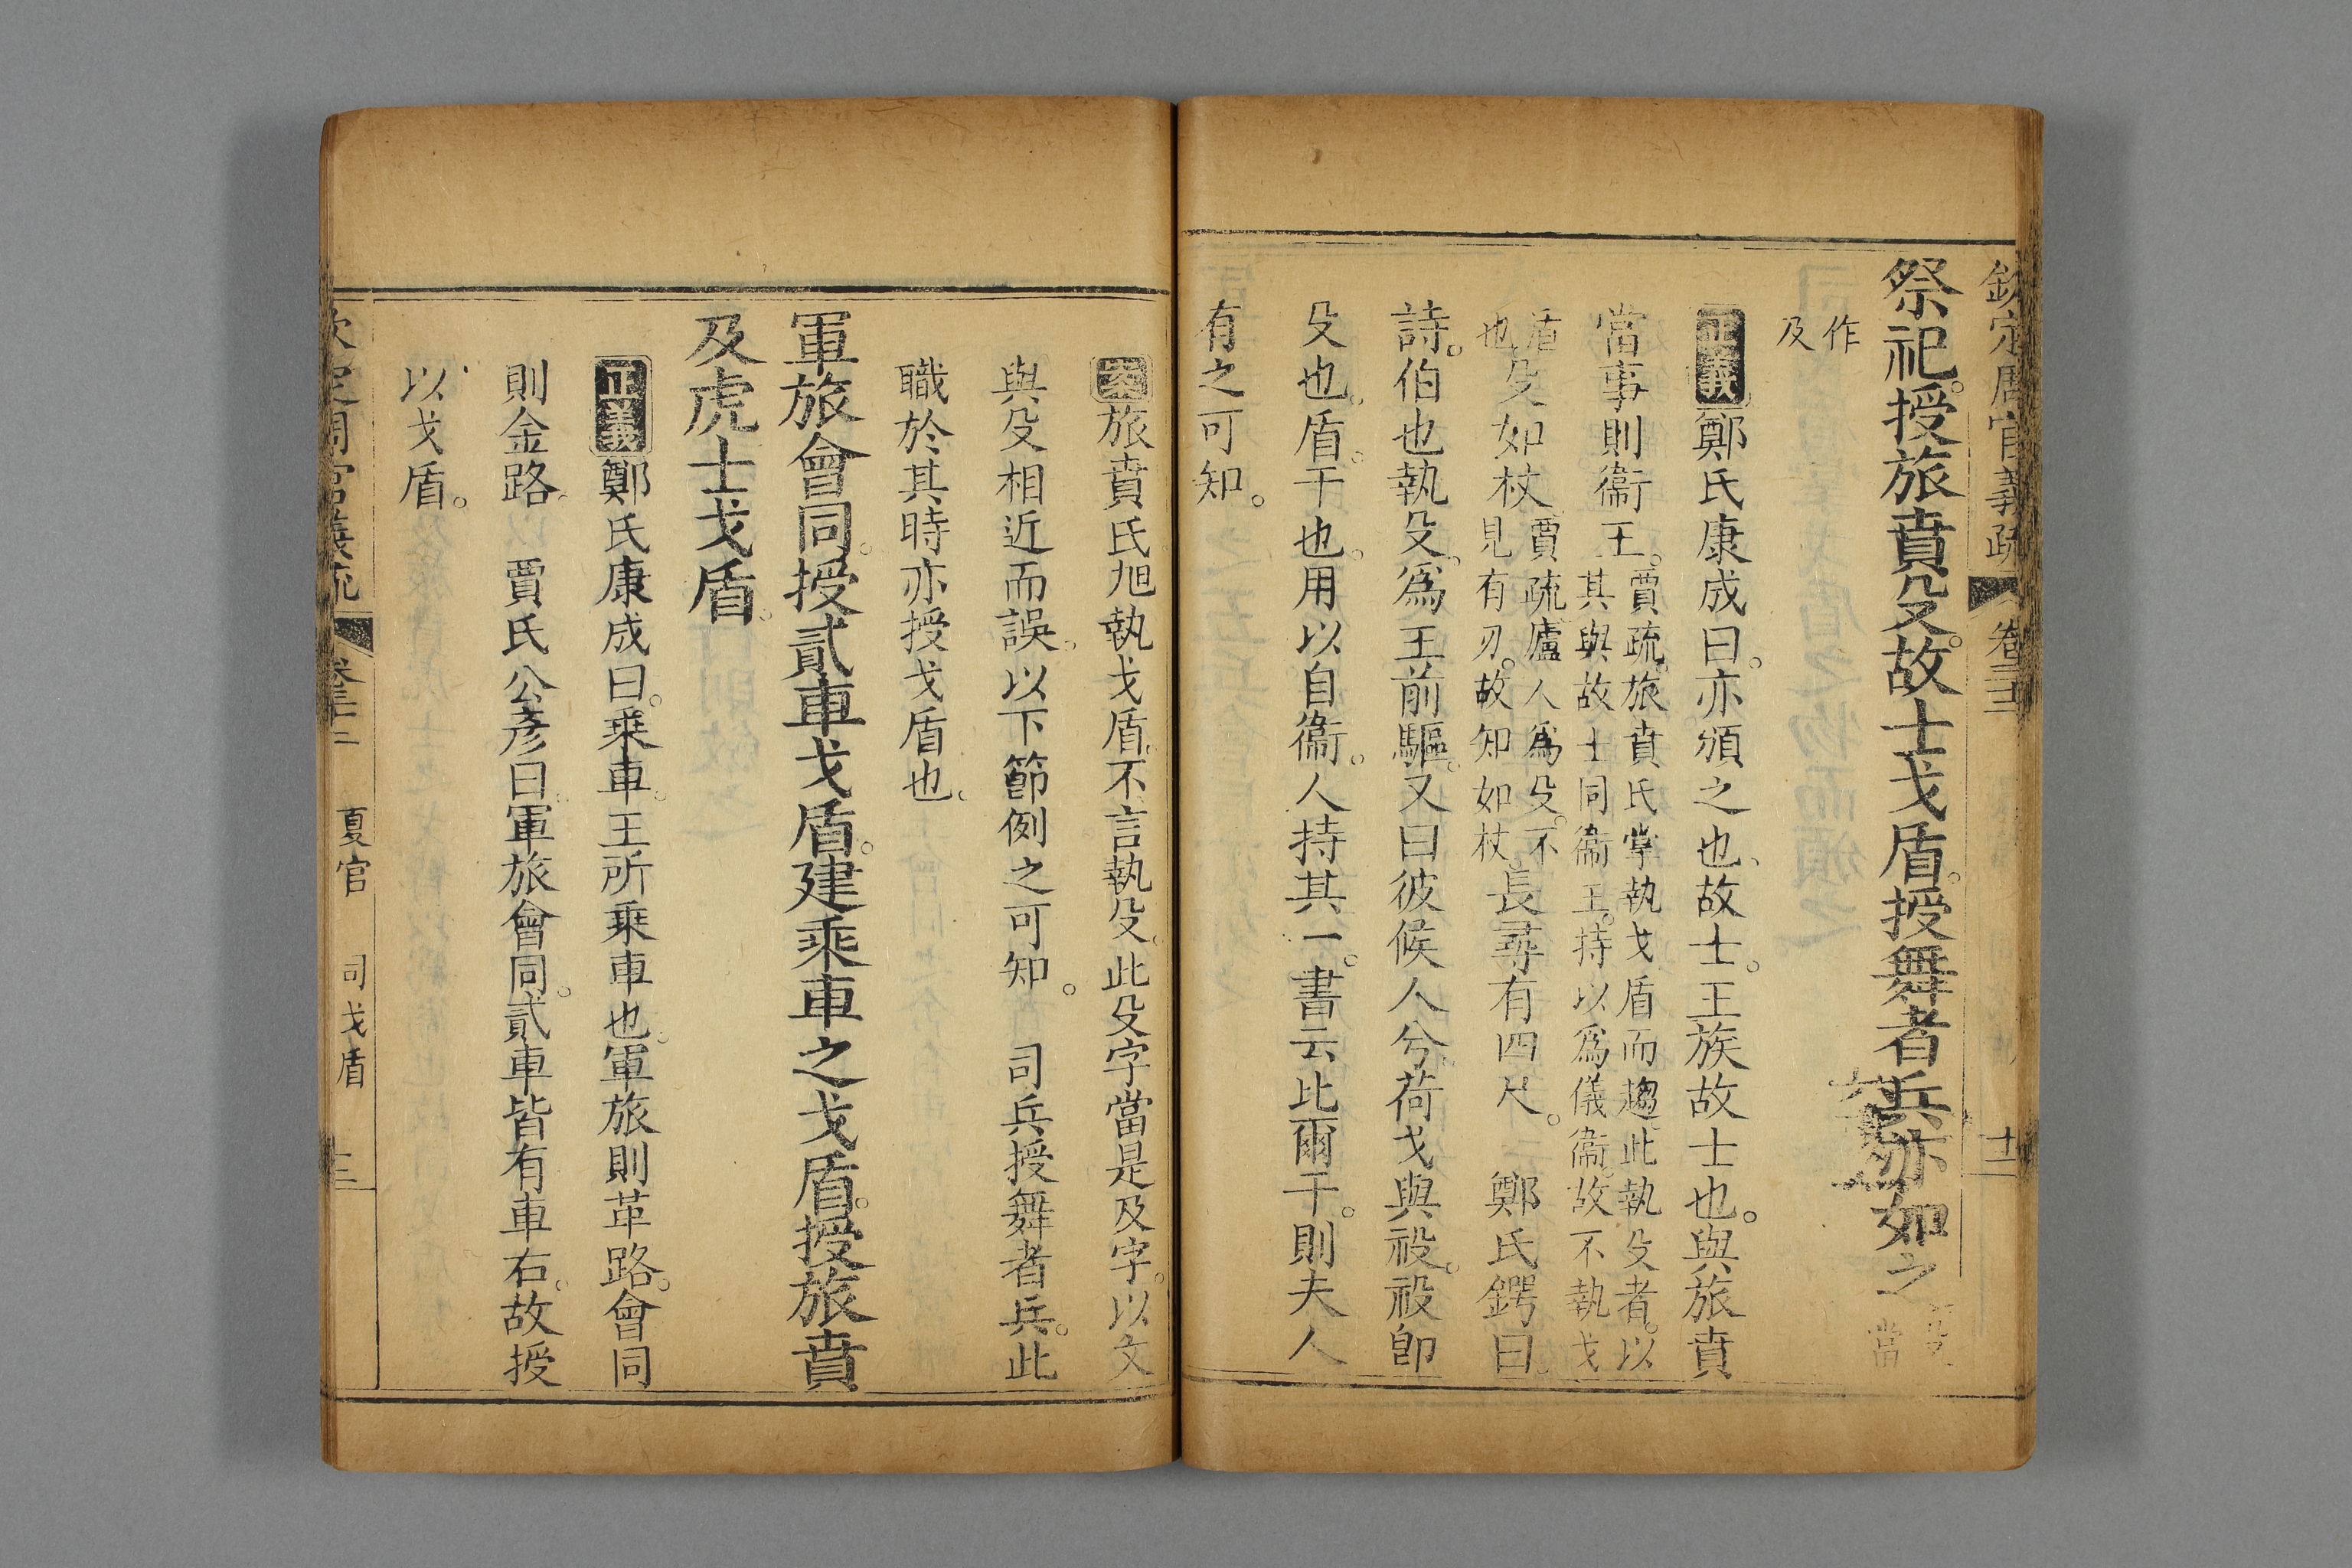 欽定周官義疏 卷三十二 十二
祭祀。授旅賁殳。故士戈盾。授舞者兵亦如之 殳當
作及
正義 鄭氏康成曰。亦頒之也、故士。王族故士也。與旅賁
當事則衞王。賈疏。旅賁氏掌執戈盾而趨。此執殳者。以其與故士同衞王。持以爲儀衞。故不執戈
盾也 殳如杖 賈疏。廬人爲殳。不見有刃。故知如杖。 長尋有四尺。 鄭氏鍔曰。
詩。伯也執殳。爲王前驅。又曰彼候人兮。荷戈與祋。祋即
殳也。盾。干也。用以自衞。人持其一。書云比爾干。則夫人
有之可知。
案 旅賁氏祇執戈盾。不言執殳。此殳字當是及字。以文
與殳相近而誤。以下節例之可知。 司兵授舞者兵。此
職於其時亦授戈盾也。
軍旅會同。授貳車戈盾。建乘車之戈盾。授旅賁
及虎士戈盾。
正義 鄭氏康成曰。乘車。王所乘車也。軍旅則革路。會同
則金路。 賈氏公彥曰。軍旅會同。貳車皆有車右。故授
以戈盾。
欽定周官義疏 卷三十二 夏官 司戈盾 十三